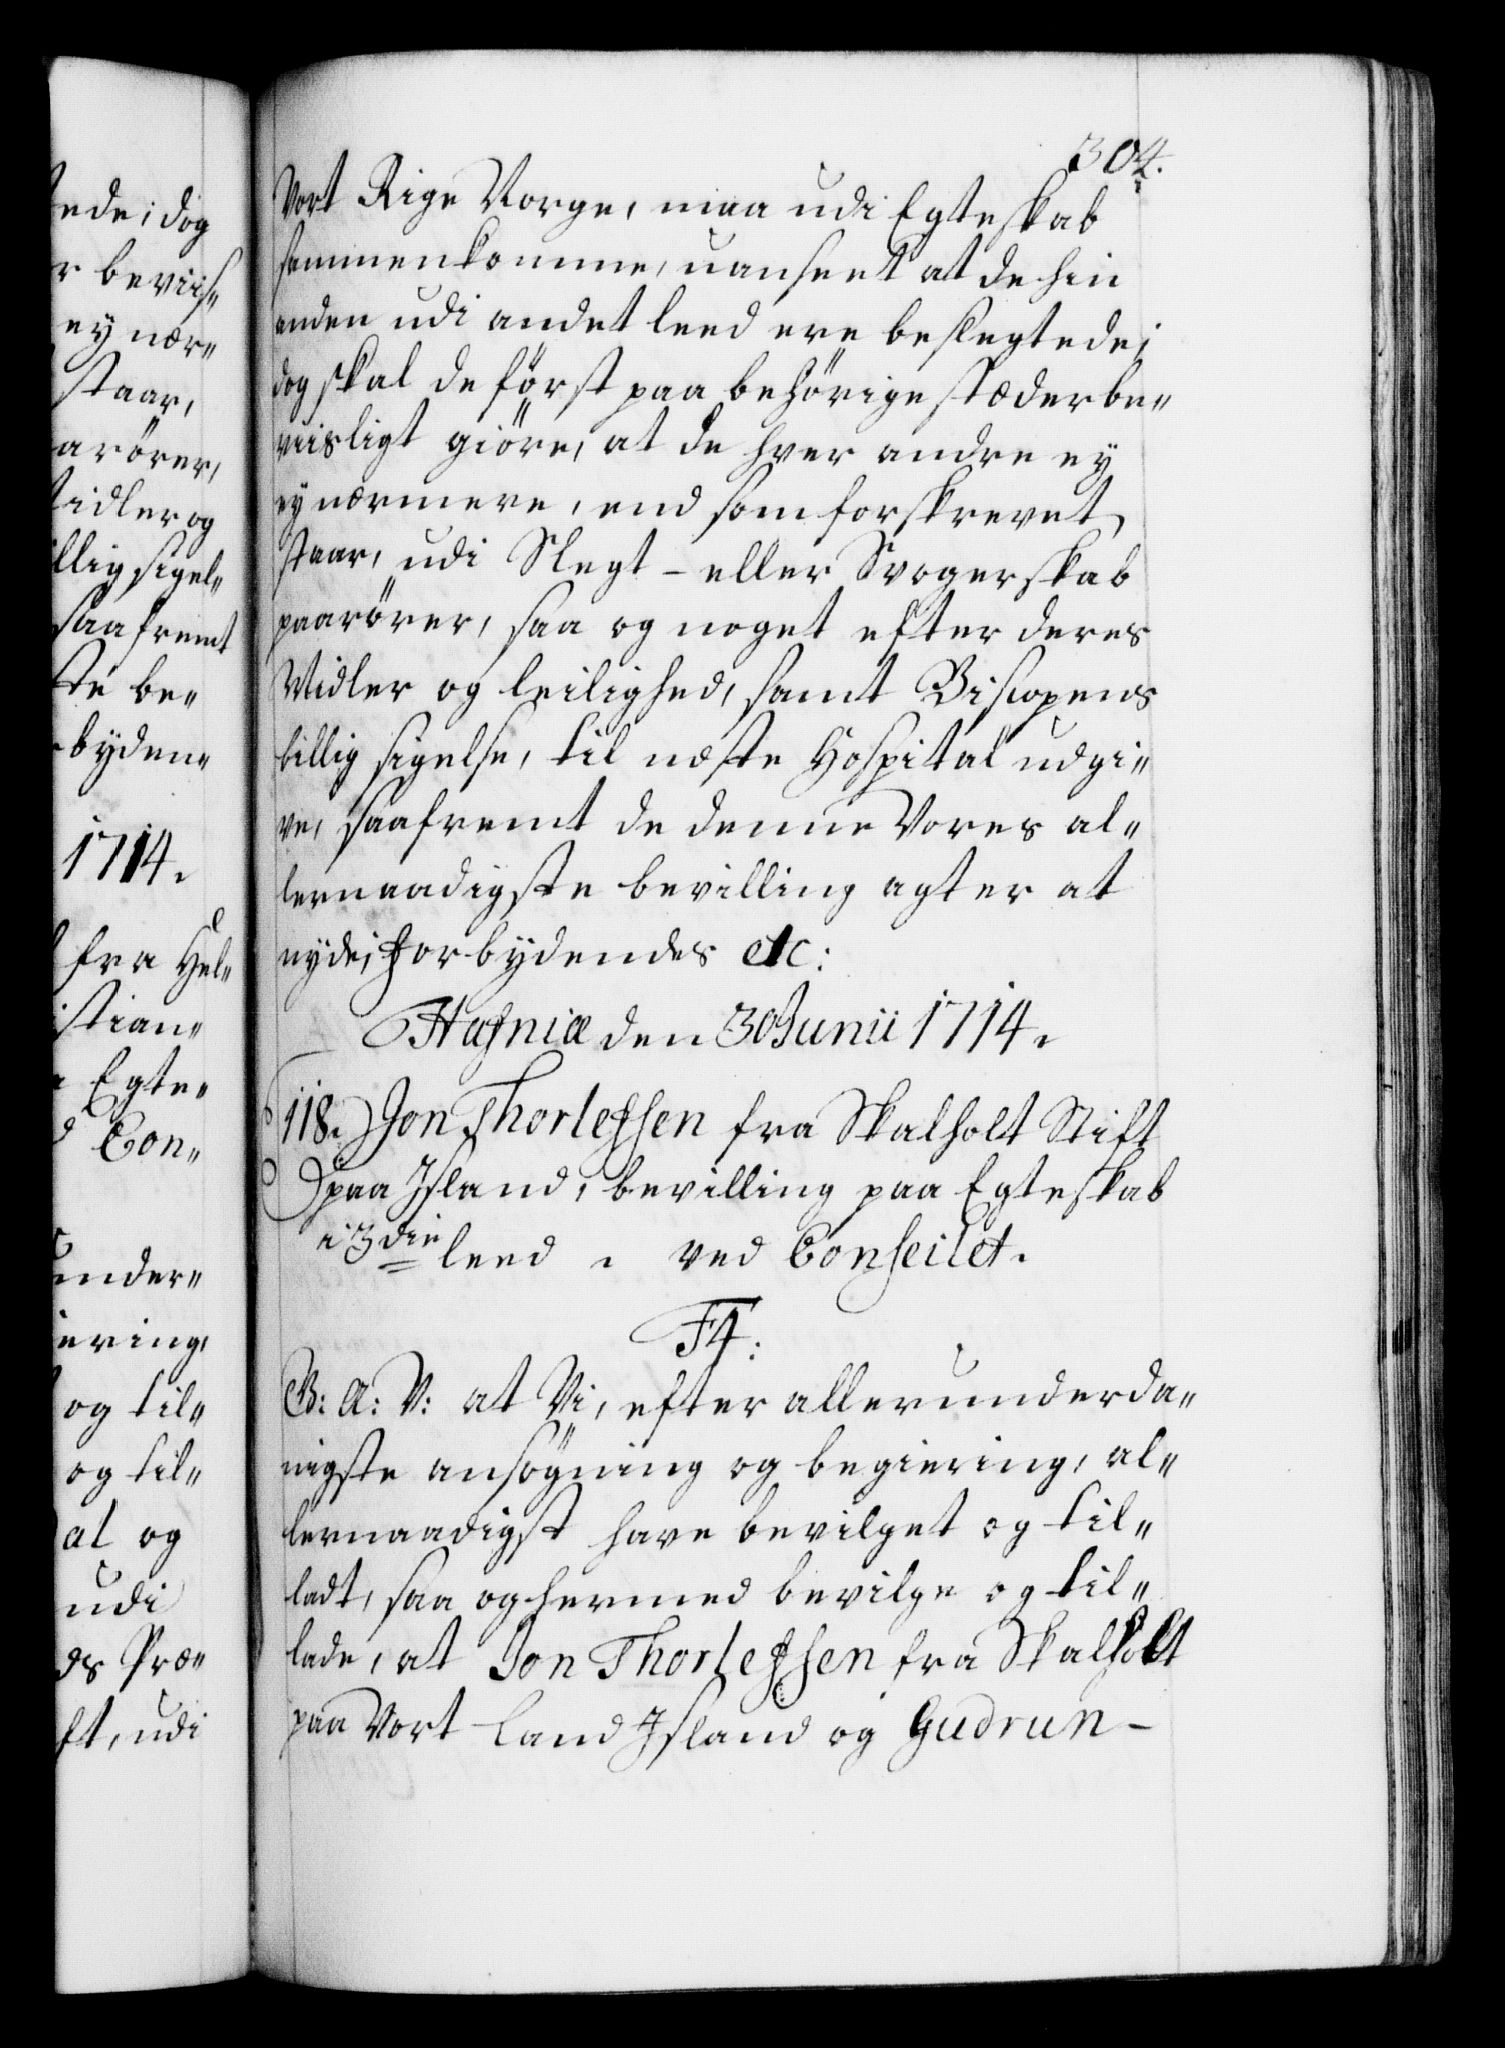 304.
Vort Rige Norge, maa udi Egteskab
sammenkomme, uanseet at de hin
anden udi andet leed ere beslegtede;
dog skal de först paa behörige stæder be„
viisligt giöre, at de hver andre ey
ey nærmere, end som forskrevet
staar, udi Slegt- eller Svogerskab
paarörer, saa og noget efter deres
Midler og leilighed, samt Biscopens
billig sigelse, til næste Hospital udgi„
ve, saafremt de denne Vores al„
lernaadigste bevilling agter at
nyde; Forbydendes etc:
Hafniæ den 30 Junii 1714.
118. Jon Thorlefsen fra Skalholt Stift
paa Island, bevilling paa Egteskab
i 3die leed. ved Conseilet.
F4:
G: A: V: at Vi, efter allerunderda„
nigste ansögning og begiering, al„
lernaadigst have bevilget og til„
ladt, saa og hermed bevilge og til„
lade, at Jon Thorlefsen fra Skalholt
paa Vort Land Island og Gudrun-
ede; dog
r beviis„
ey nær„
staar,
arörer,
idler og
llig sigel„
saafremt
ste be„
byden„
1714.
fra Hel„
istian„
Egte„
Con„
under„
iering,
og til„
og til„
al og
udi
ds Præ„
ft, udi